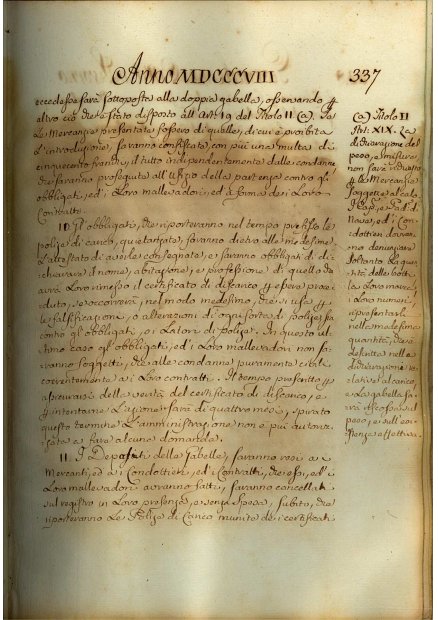 Anno MDCCCVIII
337
eccedesse sarà sottoposto alla doppia gabella, osservando
altro ciò che è stato disposto all' Art. 19 del Titolo II (a). Se
Le Mercanzie presentate fossero di quelle, di cui è proibita
L'introduzione, saranno confiscate, con più una multa di
cinquecento franchi, il tutto indipendentemente dalle condanne
che saranno proseguite all' Ufizio della partenza contro gli
obbligati, ed i Loro mallevadori, ed a forma dei Loro
Contratti.
10. Gli obbligati, che riporteranno nel tempo prefisso le
Polize di carico, quietanzate, faranno dietro alle medesime
L'attestato di averle consegnate, e saranno obbligati di di-
chiarare il nome, abitazione, e professione di quello che
avrà Loro rimesso il certificato di discarico essere proce-
duto, se occorrerà, nel modo medesimo, che si usa
le falsificazioni, o alterazioni di ogni sorte di polize, sia
contro gli obbligati, o i Latori di Polize. In questo ul-
timo caso gli obbligati, ed i Loro mallevadori non sa-
ranno soggetti, che alle condanne puramente civili
coerentemente ai Loro contratti. Il tempo
assicurarsi della verità del certificato di discarico, e
intentarne L'azione sarà di quattro mesi, e spirato
questo termine L'amministrazione non è più autoriz-
zata a fare alcuna domanda.
11. I Depositi delle Gabelle, saranno resi a i
Mercanti, ed a i Condottieri, ed i Contratti, che essi, ed i
Loro mallevadori avranno fatti, saranno cancellati
sul registro in Loro presenza, e senza spesa, subito, che
riporteranno Le Polize di Carico munite de' certificati
(a) Titolo II
Art. XIX. La
dichiarazione del
peso, e misura
non sarà richiesta
Le Mercanzie
soggette al calo
I Cap.ni e Pad.ni di
Nave, ed i Con-
dottieri dovran-
no denunziare
soltanto La quan-
tità delle botti
La Loro marca,
i Loro numeri,
ripresentarli
nella medesima
quantità, de-
scritta nella
dichiarazione re-
lativa al carico,
e La gabella sa-
rà riscossa sul
peso, e sull' esi-
stenza effettiva.